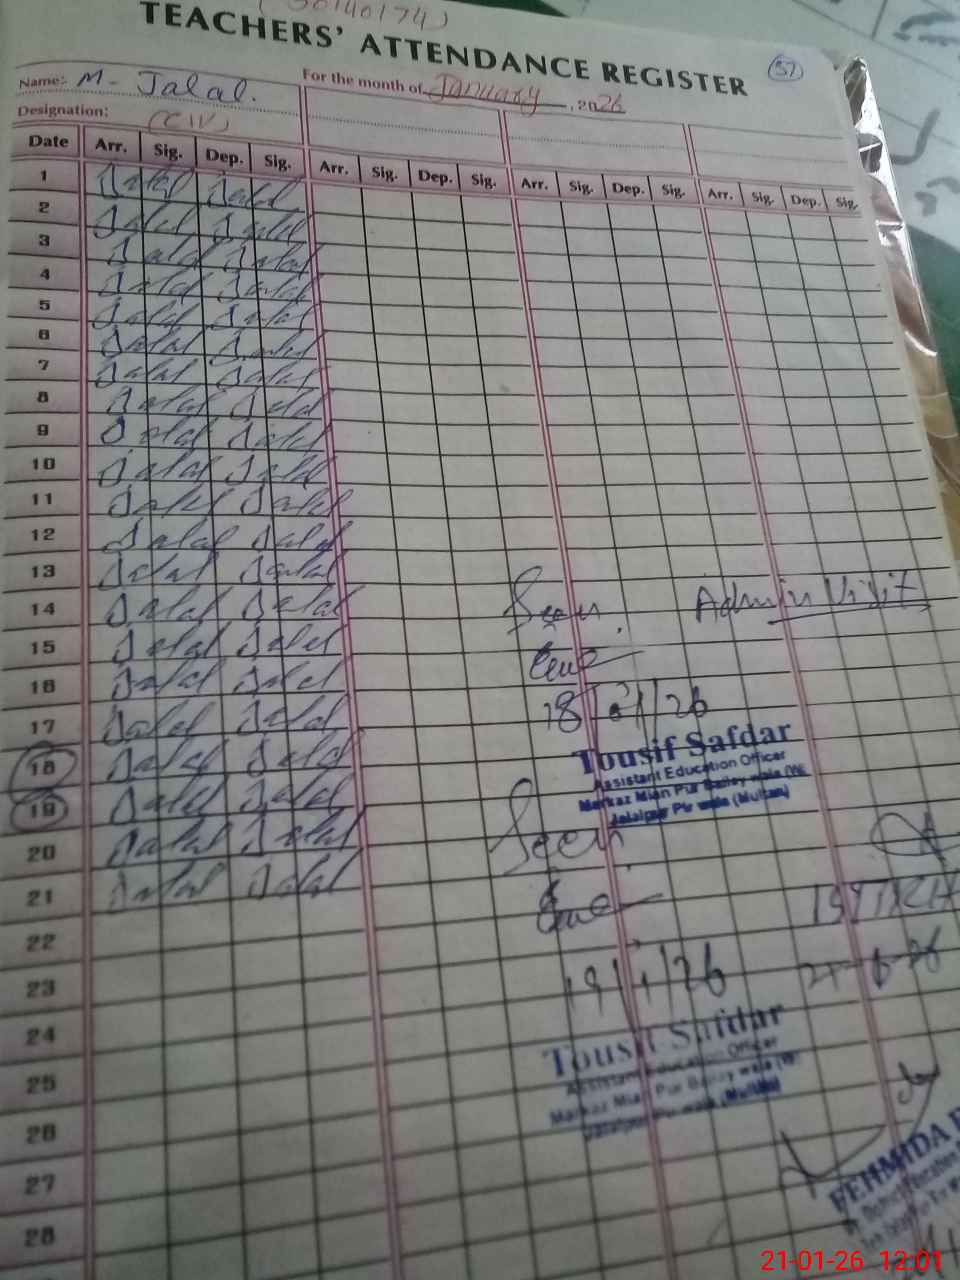 (30140174)
TEACHERS' ATTENDANCE REGISTER
57
Name:- M- Jalal.
For the month of January, 2026
Designation:
(CIV)
Date Arr. Sig. Dep. Sig. Arr. Sig. Dep. Sig. Arr. Sig. Dep. Sig. Arr. Sig. Dep. Sig.
1 Jalal Jalal
2 Jalal Jalal
3 Jalal Jalal
4 Jalal Jalal
5 Jalal Jalal
6 Jalal Jalal
7 Jalal Jalal
8 Jalal Jalal
9 Jalal Jalal
10 Jalal Jalal
11 Jalal Jalal
12 Jalal Jalal
13 Jalal Jalal
14 Jalal Jalal
15 Jalal Jalal
16 Jalal Jalal
17 Jalal Jalal
18 Jalal Jalal
19 Jalal Jalal
20 Jalal Jalal
21 Jalal Jalal
22
23
24
25
26
27
28
Seen. Admin Visit
18/01/26
Tousif Safdar
Assistant Education Officer
Markaz Mian Pur wala (W)
Jalalpur Pir wala (Multan)
Seen.
19/1/26
Tousif Safdar
Assistant Education Officer
Markaz Mian Pur wala (W)
Jalalpur Pir wala (Multan)
FEHMIDA
21-01-26 12:01